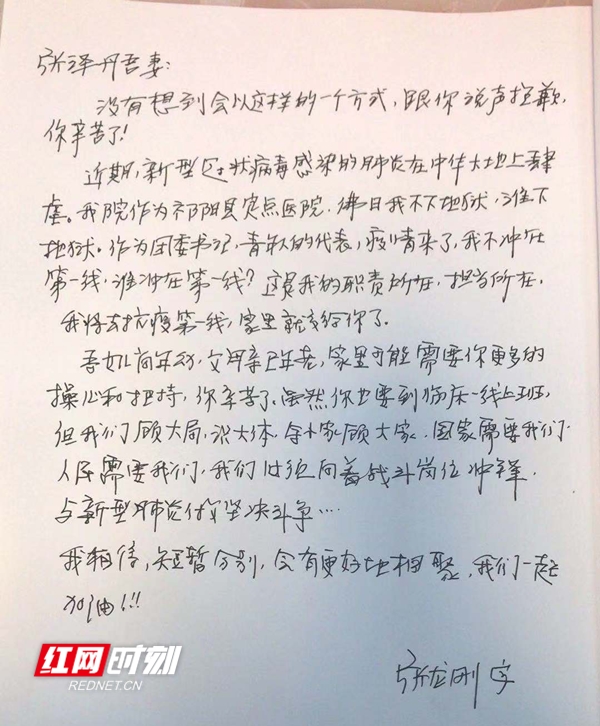 张泽丹吾妻：
没有想到会以这样的一个方式，跟你说声抱歉，
你辛苦了！
近期，新型冠状病毒感染的肺炎在中华大地上肆
虐。我院作为祁阳县定点医院，佛曰我不下地狱，谁下
地狱。作为团委书记，青年人的代表，疫情来了，我不冲在
第一线，谁冲在第一线？这是我的职责所在，担当所在，
我将去抗疫第一线，家里就交给你了。
吾女儿尚年幼，父母亲已年老，家里可能需要你更多的
操心和把持，你辛苦了。虽然你也要到临床一线上班，
但我们顾大局，识大体，舍小家顾大家，国家需要我们，
人民需要我们，我们必须向着战斗岗位冲锋，
与新型肺炎作坚决斗争……
我相信，短暂分别，会有更好地相聚，我们一起
加油！！！
张龙刚 字
红网时刻
REDNET.CN